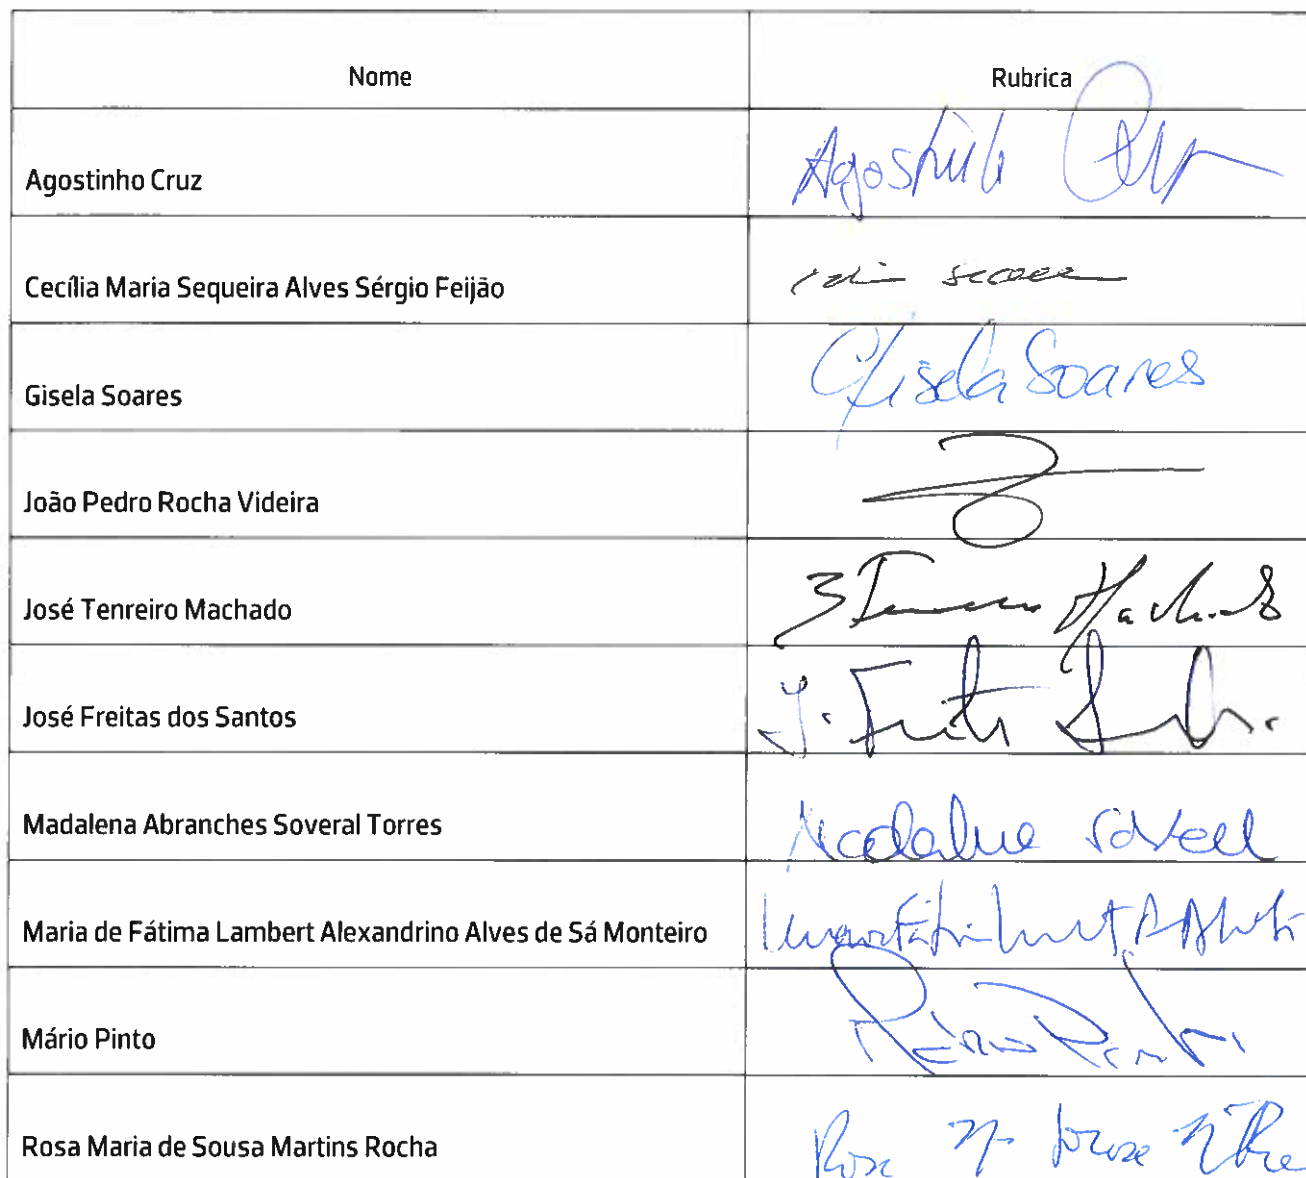 Nome Rubrica
Agostinho Cruz Agostinho Cruz
Cecília Maria Sequeira Alves Sérgio Feijão
Gisela Soares Gisela Soares
João Pedro Rocha Videira
José Tenreiro Machado J Tenreiro Machado
José Freitas dos Santos J. Freitas Santos
Madalena Abranches Soveral Torres Madalena Soveral
Maria de Fátima Lambert Alexandrino Alves de Sá Monteiro
Mário Pinto Mário Pinto
Rosa Maria de Sousa Martins Rocha Rosa Mª Sousa